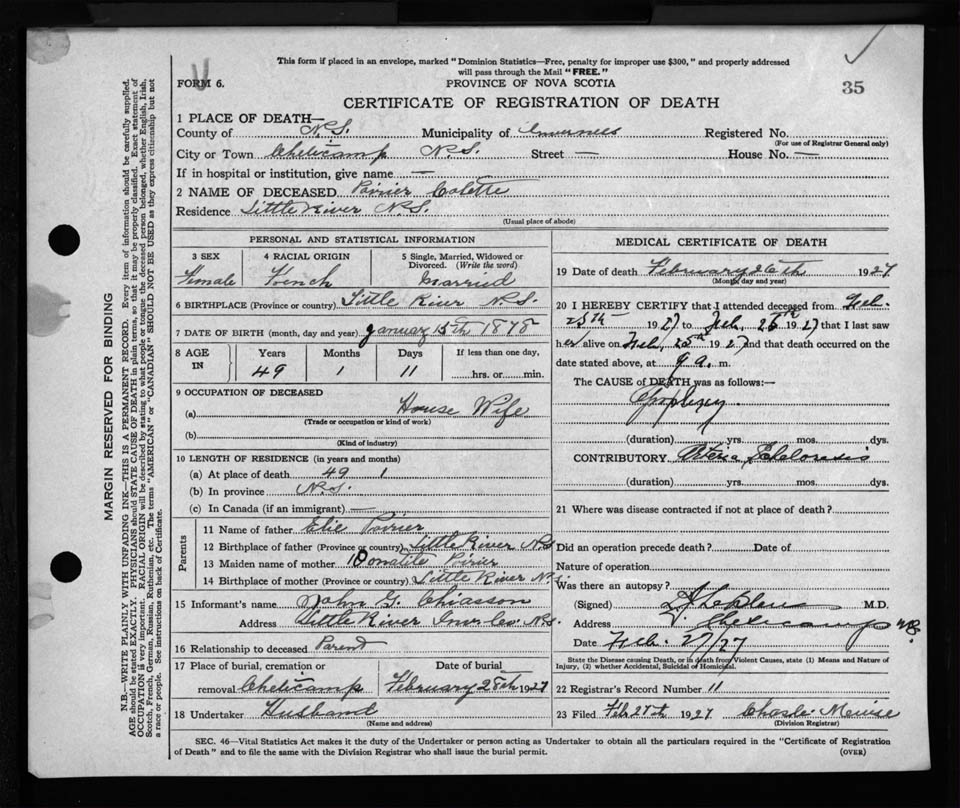 This form if placed in an envelope, marked "Dominion Statistics—Free, penalty for improper use $300," and properly addressed
will pass through the Mail "FREE."
FORM 6.
PROVINCE OF NOVA SCOTIA
35
CERTIFICATE OF REGISTRATION OF DEATH
1 PLACE OF DEATH—
County of N.S. Municipality of Inverness Registered No.
(For use of Registrar General only)
City or Town Cheticamp N.S. Street — House No. —
If in hospital or institution, give name —
2 NAME OF DECEASED Poirier Colette
Residence Little River N.S.
(Usual place of abode)
PERSONAL AND STATISTICAL INFORMATION
3 SEX 4 RACIAL ORIGIN 5 Single, Married, Widowed or
Divorced. (Write the word)
Female French Married
6 BIRTHPLACE (Province or country) Little River N.S.
7 DATE OF BIRTH (month, day and year) January 15th 1878
8 AGE IN Years Months Days If less than one day,
49 1 11 hrs. or min.
9 OCCUPATION OF DECEASED
(a) House Wife
(Trade or occupation or kind of work)
(b)
(Kind of industry)
10 LENGTH OF RESIDENCE (in years and months)
(a) At place of death 49 1
(b) In province N.S.
(c) In Canada (if an immigrant) —
Parents
11 Name of father Elie Poirier
12 Birthplace of father (Province or country) Little River N.S.
13 Maiden name of mother
14 Birthplace of mother (Province or country) Little River N.S.
15 Informant's name John G. Chiasson
Address Little River Inver. Co. N.S.
16 Relationship to deceased Parent
17 Place of burial, cremation or Date of burial
removal Cheticamp February 28th 1927
18 Undertaker Husband
(Name and address)
MEDICAL CERTIFICATE OF DEATH
19 Date of death February 26th 1927
(Month, day and year)
20 I HEREBY CERTIFY that I attended deceased from Feb.
25th 1927 to Feb. 26th 1927 that I last saw
her alive on Feb. 25th 1927 and that death occurred on the
date stated above, at 9 a. m.
The CAUSE of DEATH was as follows:—
(duration) yrs. mos. dys.
CONTRIBUTORY
(duration) yrs. mos. dys.
21 Where was disease contracted if not at place of death?
Did an operation precede death? Date of
Nature of operation
Was there an autopsy?
(Signed) M.D.
Address Cheticamp N.S.
Date Feb. 27/27
State the Disease causing Death, or in death from Violent Causes, state (1) Means and Nature of
Injury, (2) whether Accidental, Suicidal or Homicidal.
22 Registrar's Record Number 11
23 Filed Feb 27th 1927
(Division Registrar)
SEC. 46—Vital Statistics Act makes it the duty of the Undertaker or person acting as Undertaker to obtain all the particulars required in the "Certificate of Registration
of Death" and to file the same with the Division Registrar who shall issue the burial permit. (OVER)
MARGIN RESERVED FOR BINDING
N.B.—WRITE PLAINLY WITH UNFADING INK—THIS IS A PERMANENT RECORD. Every item of information should be carefully supplied.
AGE should be stated EXACTLY. PHYSICIANS should STATE CAUSE OF DEATH in plain terms, so that it may be properly classified. Exact statement of
OCCUPATION is very important. RACIAL ORIGIN will be described by stating to what people or tongue the deceased person belonged, whether English, Irish,
Scotch, French, German, Russian, Ruthenian, etc. The terms "AMERICAN" or "CANADIAN" SHOULD NOT BE USED as they express citizenship but not
a race or people. See instructions on back of Certificate.